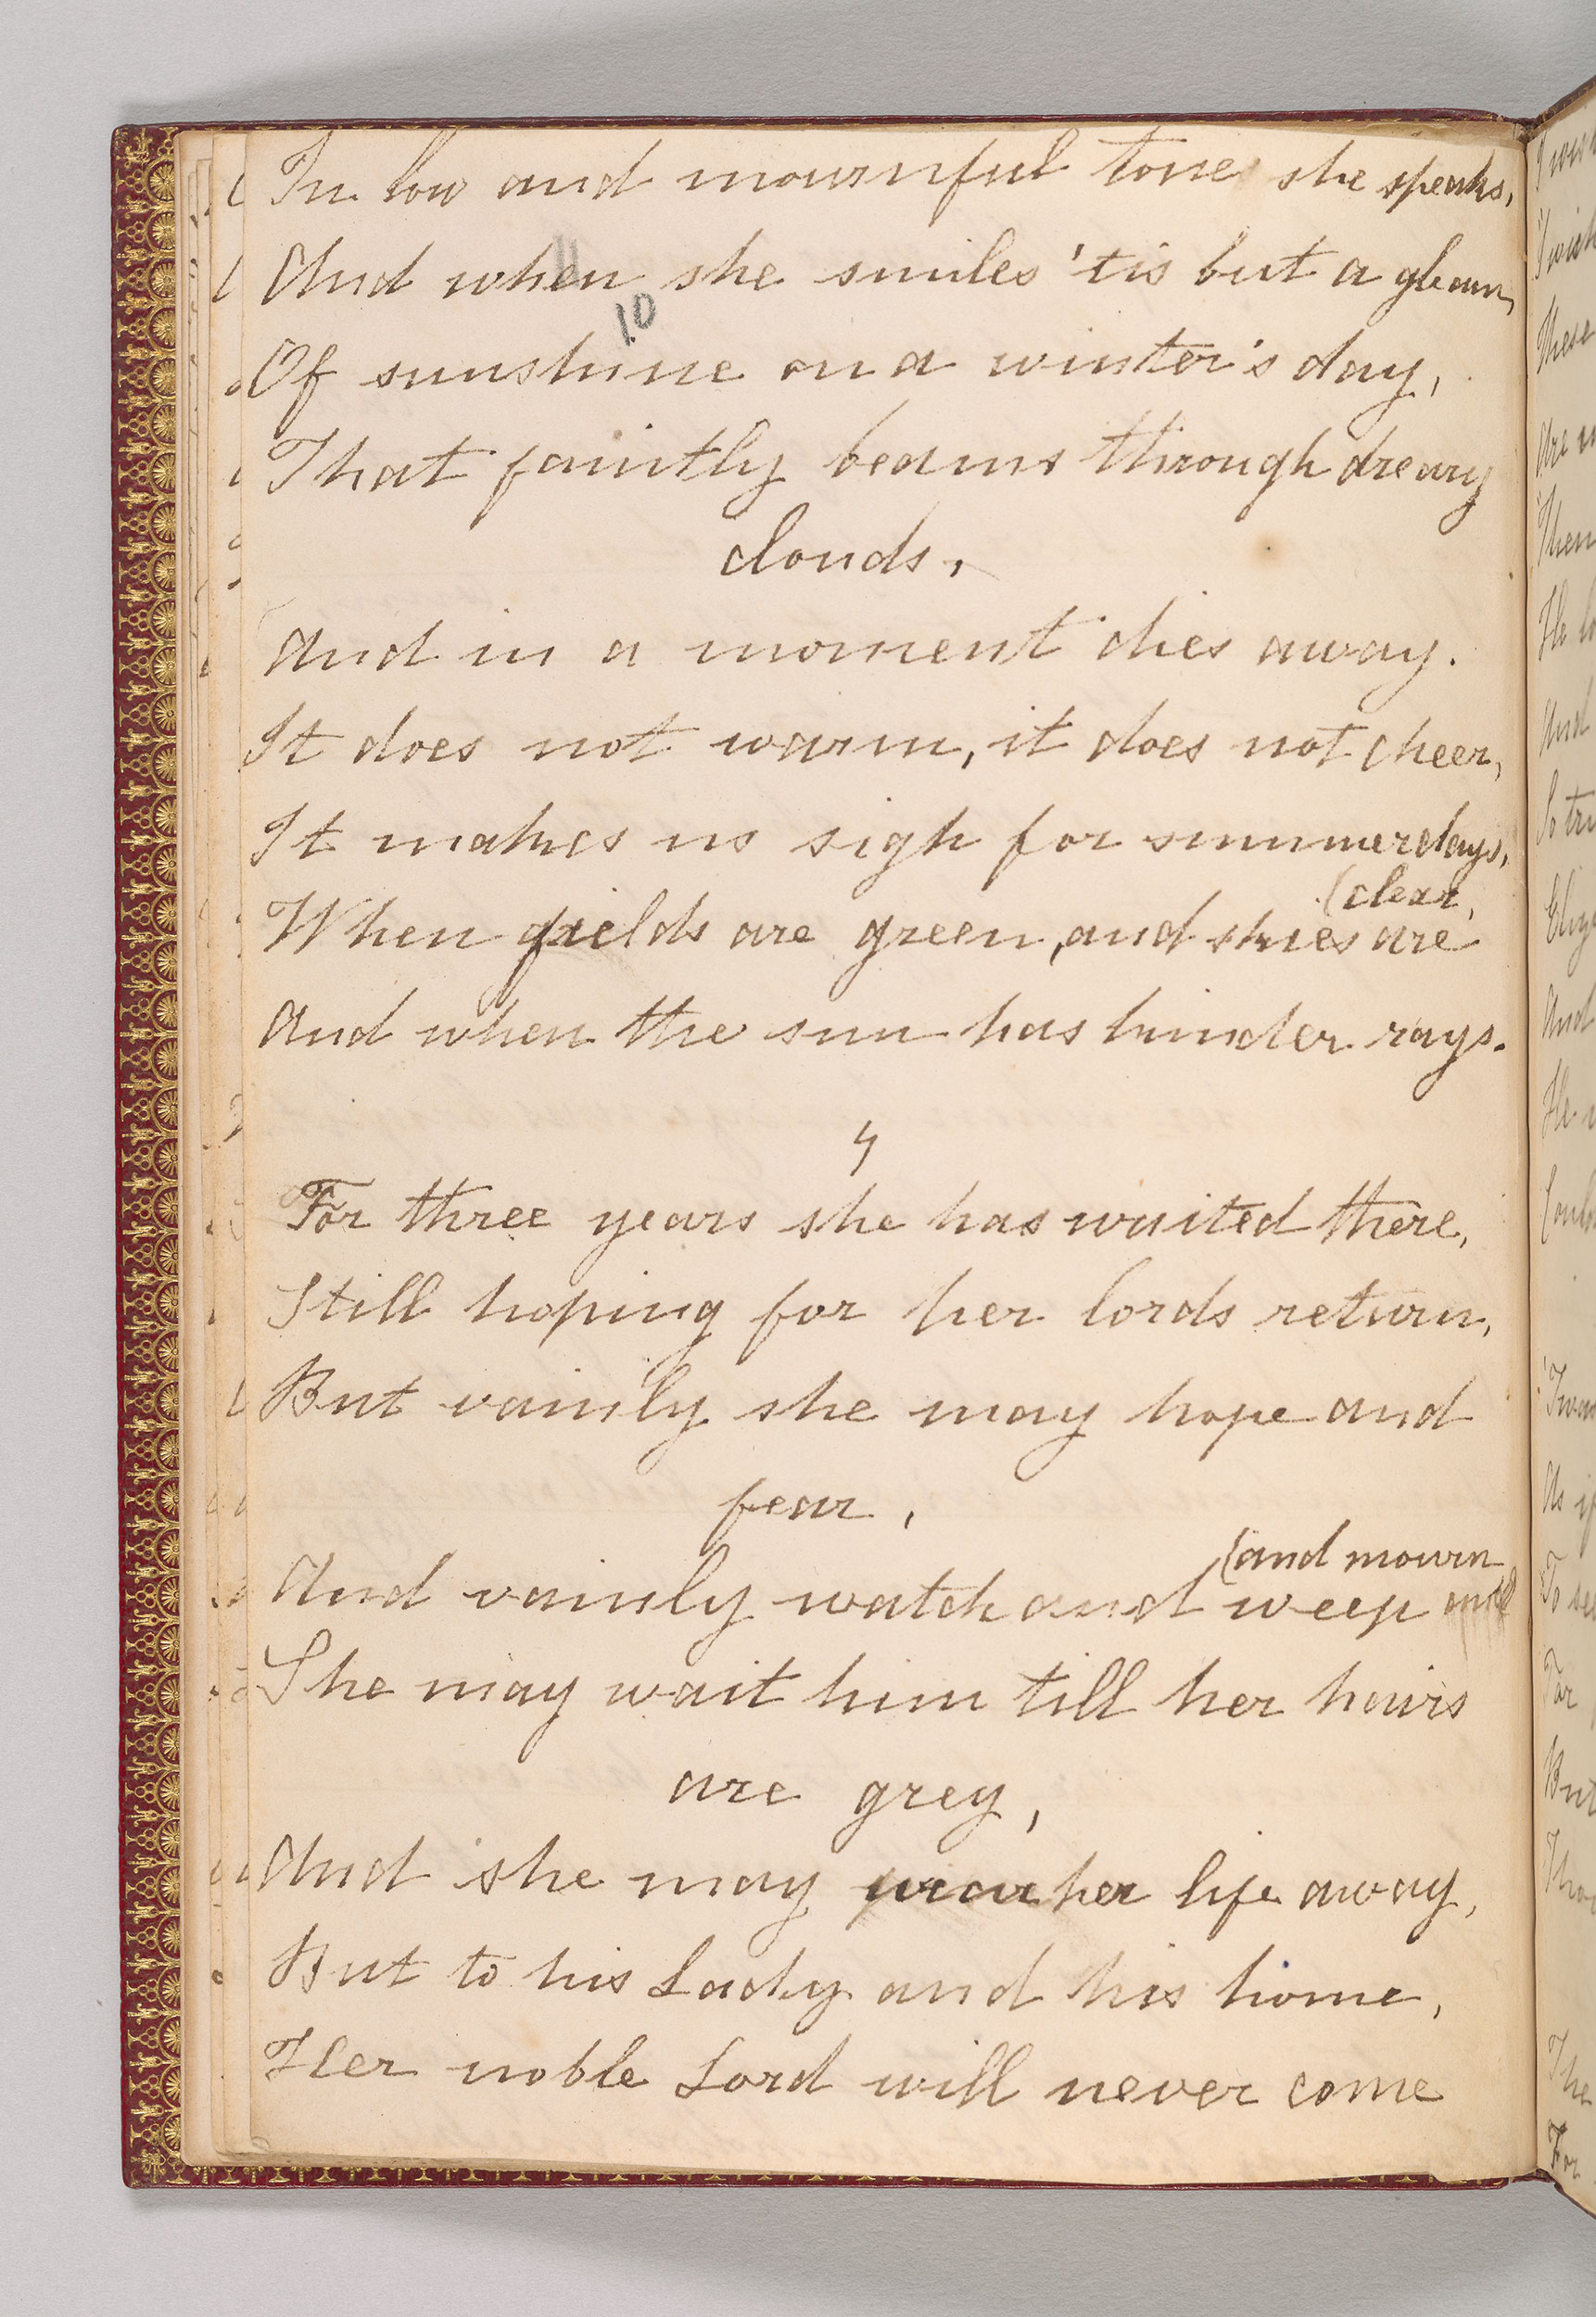 In low and mournful tone she speaks,
And when she smiles 'tis but a gleam,
10
Of sunshine on a winter's day,
That faintly beams through dreary
clouds,
And in a moment dies away.
It does not warm, it does not cheer,
It makes us sigh for summer days,
(clear,
When fields are green, and skies are
And when the sun has kinder rays.
4
For three years she has waited there,
Still hoping for her lords return,
But vainly she may hope and
fear,
(and mourn
And vainly watch and weep
She may wait him till her hairs
are grey,
And she may wear her life away,
But to his Lady and his home,
Her noble Lord will never come